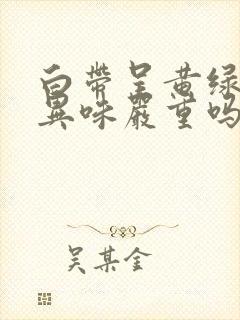 白带呈黄绿
異味嚴重吗
吴某金